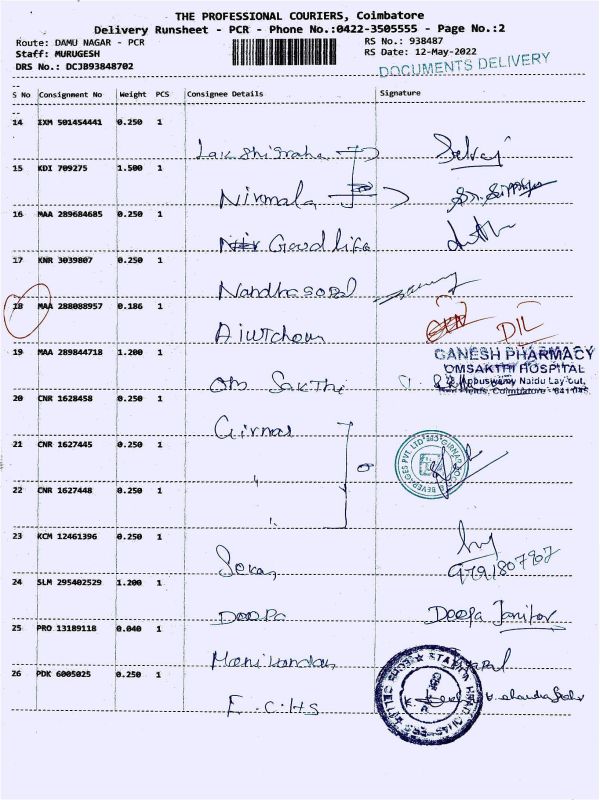 THE PROFESSIONAL COURIERS, Coimbatore
Delivery Runsheet - PCR - Phone No.:0422-3505555 - Page No.:2
Route: DAMU NAGAR - PCR
RS No.: 938487
Staff: MURUGESH
RS Date: 12-May-2022
DRS No.: DCJB93848702
DOCUMENTS DELIVERY
S No Consignment No Weight PCS Consignee Details Signature
14 IXM 501454441 0.250 1
15 KDI 709275 1.500 1 Nirmala
16 MAA 289684685 0.250 1 Good life
17 KNR 3039807 0.250 1
18 MAA 288088957 0.186 1 DIL
19 MAA 289844718 1.200 1 Om Sakthi
GANESH PHARMACY
OMSAKTHI HOSPITAL
Appuswamy Naidu Lay-out,
Coimbatore
20 CNR 1628458 0.250 1 Girnar
21 CNR 1627445 0.250 1
BEVERAGES PVT. LTD
22 CNR 1627448 0.250 1
23 KCM 12461396 0.250 1 Sekar
9791807907
24 SLM 295402529 1.200 1 Doopa Doopa Janitor
25 PRO 13189118 0.040 1 Manikandan
26 PDK 6005025 0.250 1 E.C.H.S
STATION HEADQUARTERS